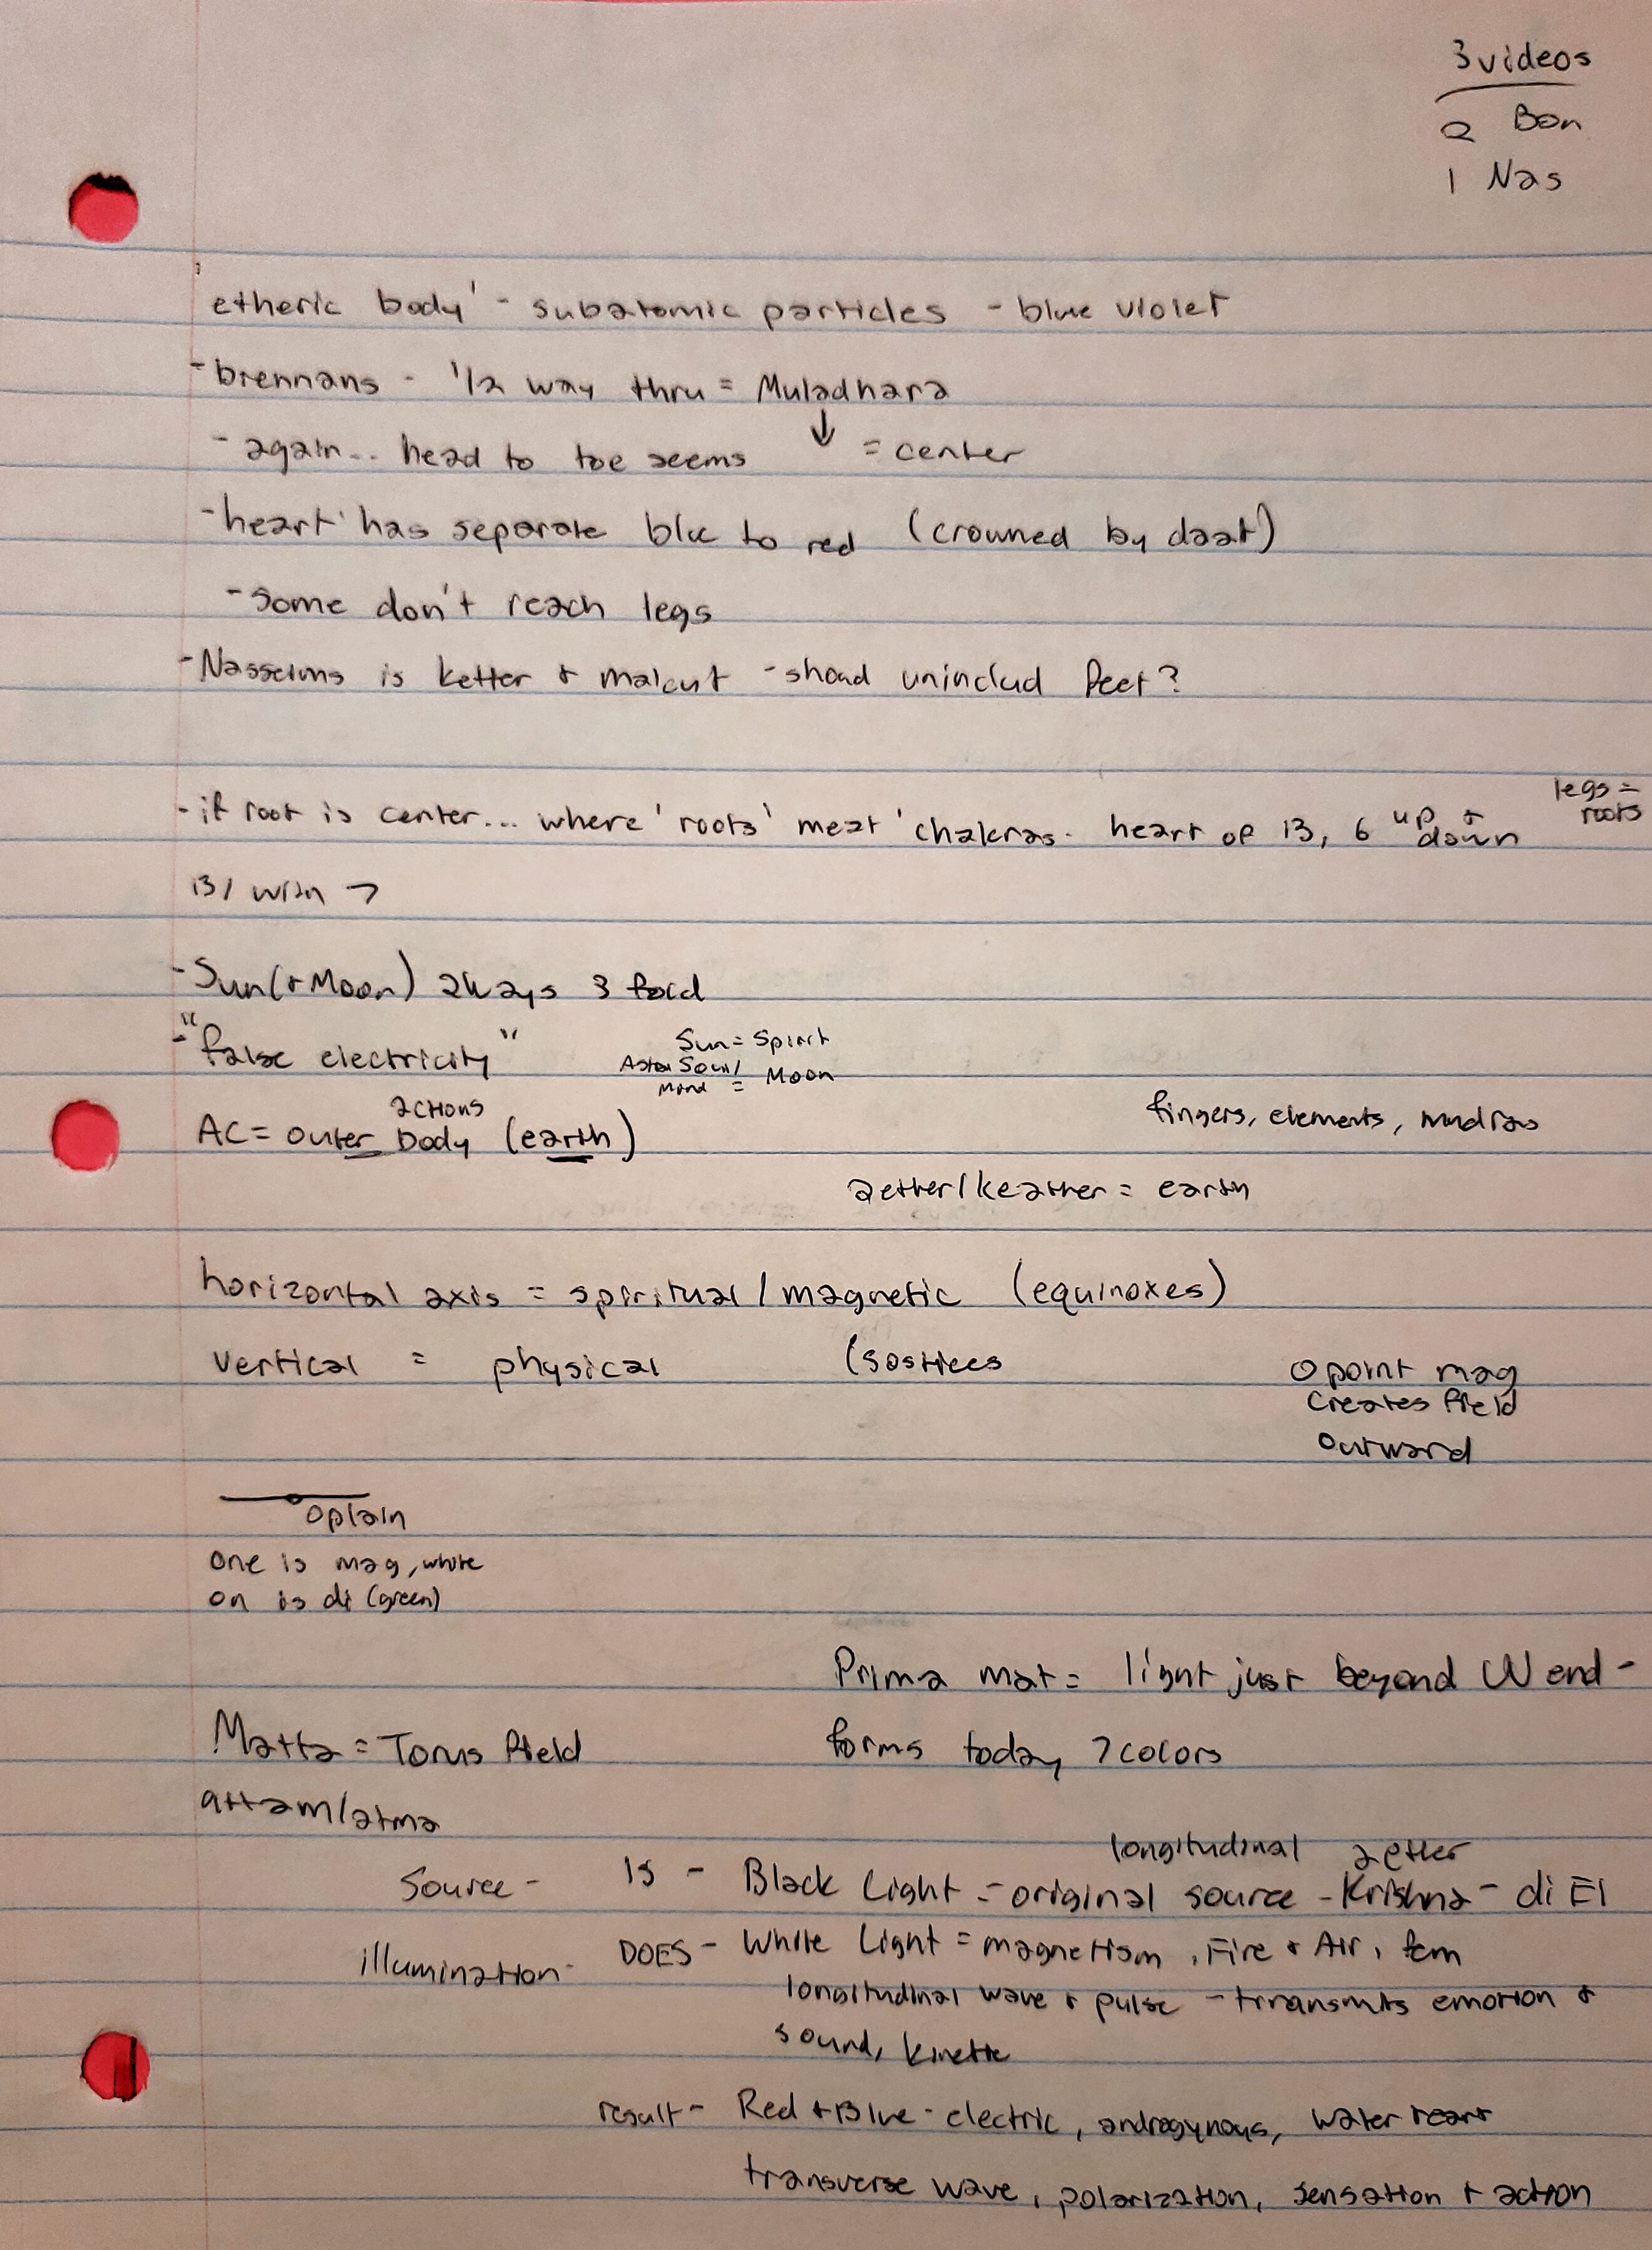 3 videos
2 Bon
1 Nas
'etheric body' - subatomic particles - blue violet
- brennans - 1/2 way thru = Muladhara
- again... head to toe seems ↓ = center
- heart has separate blue to red (crowned by daat)
- some don't reach legs
- Nasseims is ketter + malcut - shoud uninclud feet?
legs = roots
- if root is center... where 'roots' meat 'chakras. heart of 13, 6 up + down
13 / with 7
- Sun (+ Moon) always 3 fold
- "false electricity"
Sun = Spirit
Soul/Mind = Moon
actions
AC = outer body (earth)
fingers, elements, mudras
aether/keather = earth
horizontal axis = spiritual / magnetic (equinoxes)
vertical = physical (sostices
0 point mag
creates field
outward
0 plain
one is mag, white
on is di (green)
Prima mat = light just beyond UV end -
forms today 7 colors
Matta = Torus field
attam/atma
longitudinal aether
Source - IS - Black Light = original source - Krishna - di El
illumination - DOES - White Light = magnetism, Fire + Air, fem
longitudinal wave + pulse - trransmits emotion +
sound, kinetic
result - Red + Blue - electric, androgynous, water
transverse wave, polarization, sensation + action